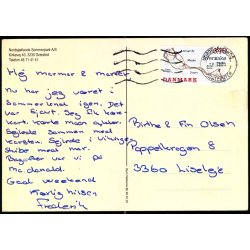 Nordsjællands Sommerpark A/S
Kirkevej 43, 3230 Græsted
Telefon 48 71 41 41
Hej mormor & morfar
Nu har jeg været i
Sommerland igen. Det
var sjovt. Jeg fik kørt
kort. Kørte mon
Sejlede sammen med
Karsten. Sejlede i vikinge
skibe med mor.
Bagefter var vi på
mc. donald.
God weekend
Kærlig hilsen
Frederik
DANMARK
Birthe & Fin Olsen
Poppelvangen 8
3360 Liseleje